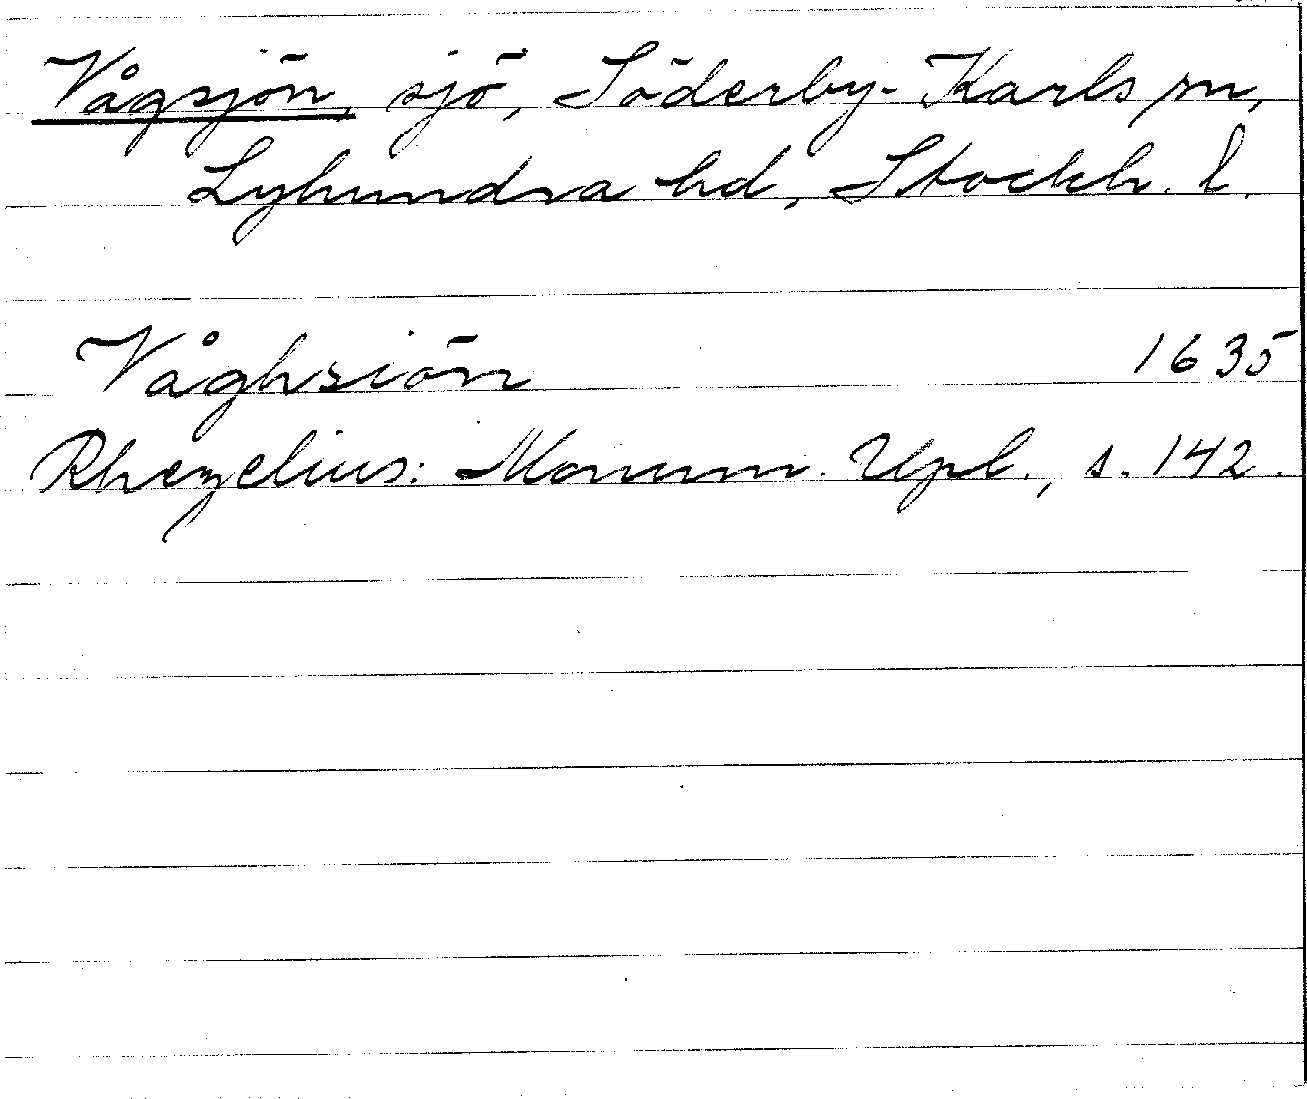 Vågsjön, sjö, Söderby-Karls sn,
Lyhundra hd, Stockh. l.
Våghsiön 1635
Rhezelius: Monum. Upl., s. 142.